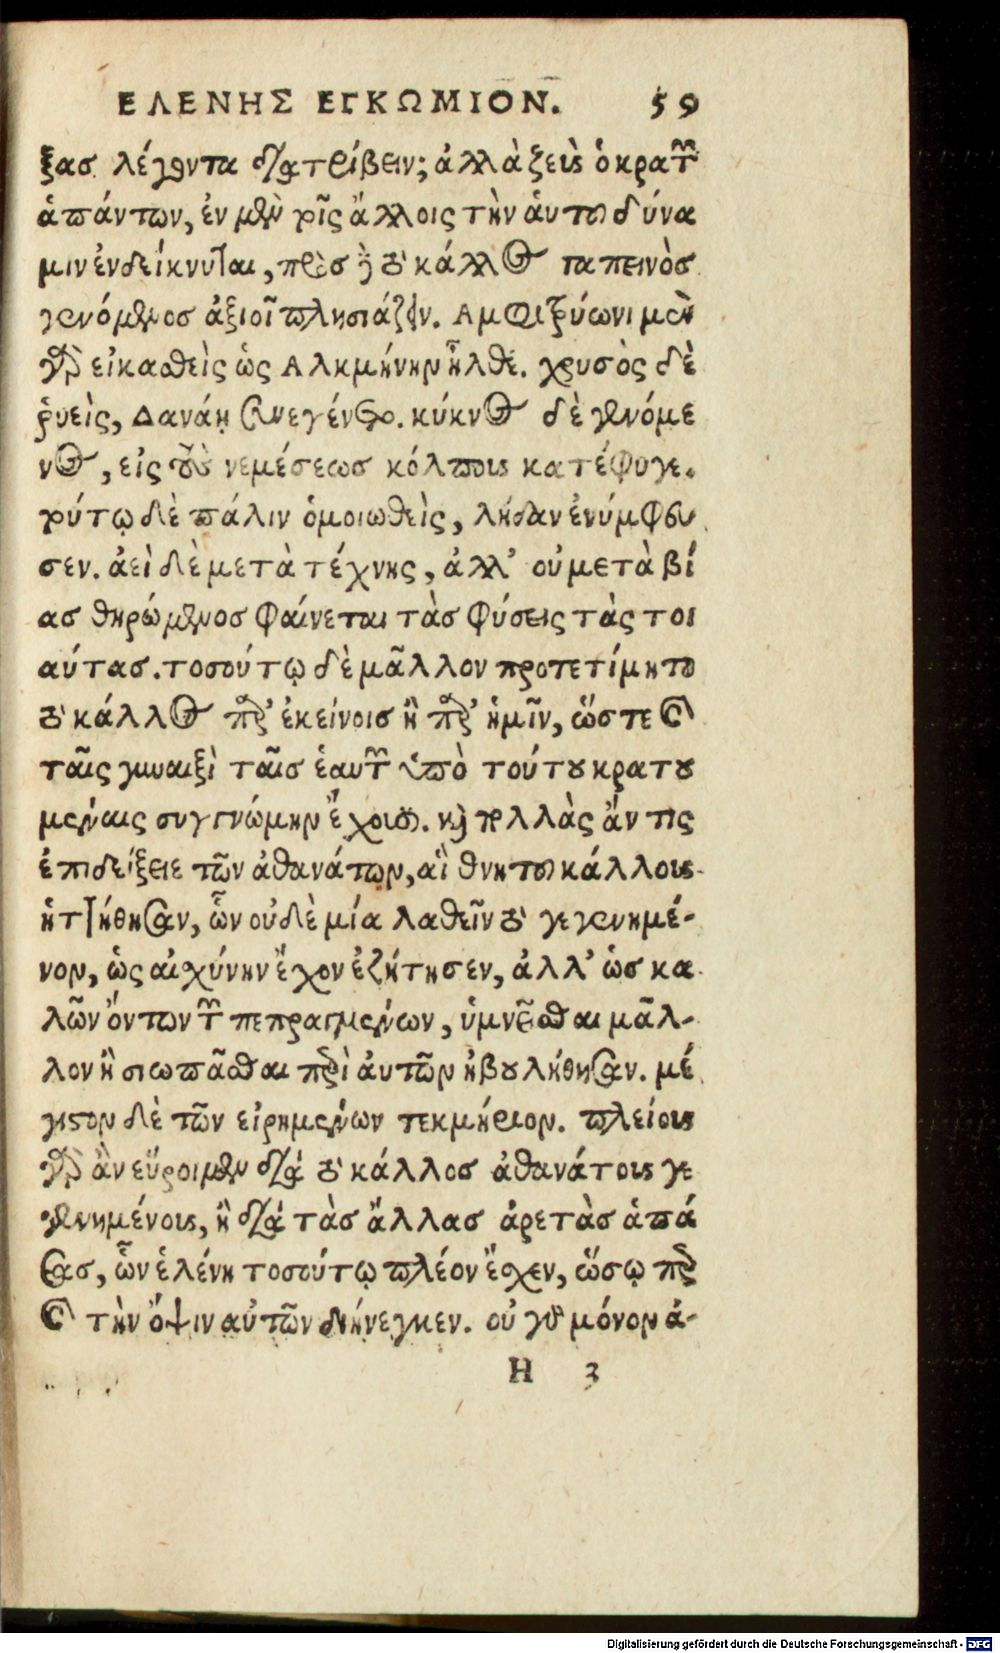 ΕΛΕΝΗΣ ΕΓΚΩΜΙΟΝ. 59
ξας λέγοντα διατρίβειν; ἀλλὰ ζεὺς ὁ κρατῶν
ἁπάντων, ἐν μὲν τοῖς ἄλλοις τὴν αὑτοῦ δύνα
μιν ἐνδείκνυται, πρὸς δὲ τὸ κάλλος ταπεινὸς
γενόμενος ἀξιοῖ πλησιάζειν. Αμφιτρύωνι μὲν
γὰρ εἰκασθεὶς ὡς Αλκμήνην ἦλθε. χρυσὸς δὲ
ῥυεὶς, Δανάῃ συνεγένετο. κύκνος δὲ γενόμε
νος, εἰς τοὺς νεμέσεως κόλπους κατέφυγε.
τούτῳ δὲ πάλιν ὁμοιωθεὶς, λήδαν ἐνύμφευ
σεν. ἀεὶ δὲ μετὰ τέχνης, ἀλλ’ οὐ μετὰ βί
ας θηρώμενος φαίνεται τὰς φύσεις τὰς τοι
αύτας. τοσούτῳ δὲ μᾶλλον προτετίμητο
τὸ κάλλος παρ’ ἐκείνοις ἢ παρ’ ἡμῖν, ὥστε καὶ
ταῖς γυναιξὶ ταῖς ἑαυτῶν ὑπὸ τούτου κρατου
μέναις συγγνώμην ἔχουσι. καὶ πολλὰς ἄν τις
ἐπιδείξειε τῶν ἀθανάτων, αἳ θνητοῦ κάλλους
ἡττήθησαν, ὧν οὐδὲ μία λαθεῖν τὸ γεγενημέ-
νον, ὡς αἰσχύνην ἔχον ἐζήτησεν, ἀλλ’ ὡς κα
λῶν ὄντων τῶν πεπραγμένων, ὑμνεῖσθαι μᾶλ-
λον ἢ σιωπᾶσθαι περὶ αὐτῶν ἠβουλήθησαν. μέ
γιστον δὲ τῶν εἰρημένων τεκμήριον. πλείους
γὰρ ἂν εὕροιμεν διὰ τὸ κάλλος ἀθανάτους γε
γενημένους, ἢ διὰ τὰς ἄλλας ἀρετὰς ἁπά
σας, ὧν ἑλένη τοσούτῳ πλέον ἔσχεν, ὥσῳ περ
καὶ τὴν ὄψιν αὐτῶν διήνεγκεν. οὐ γὰρ μόνον ἀ-
Η 3
Digitalisierung gefördert durch die Deutsche Forschungsgemeinschaft - DFG